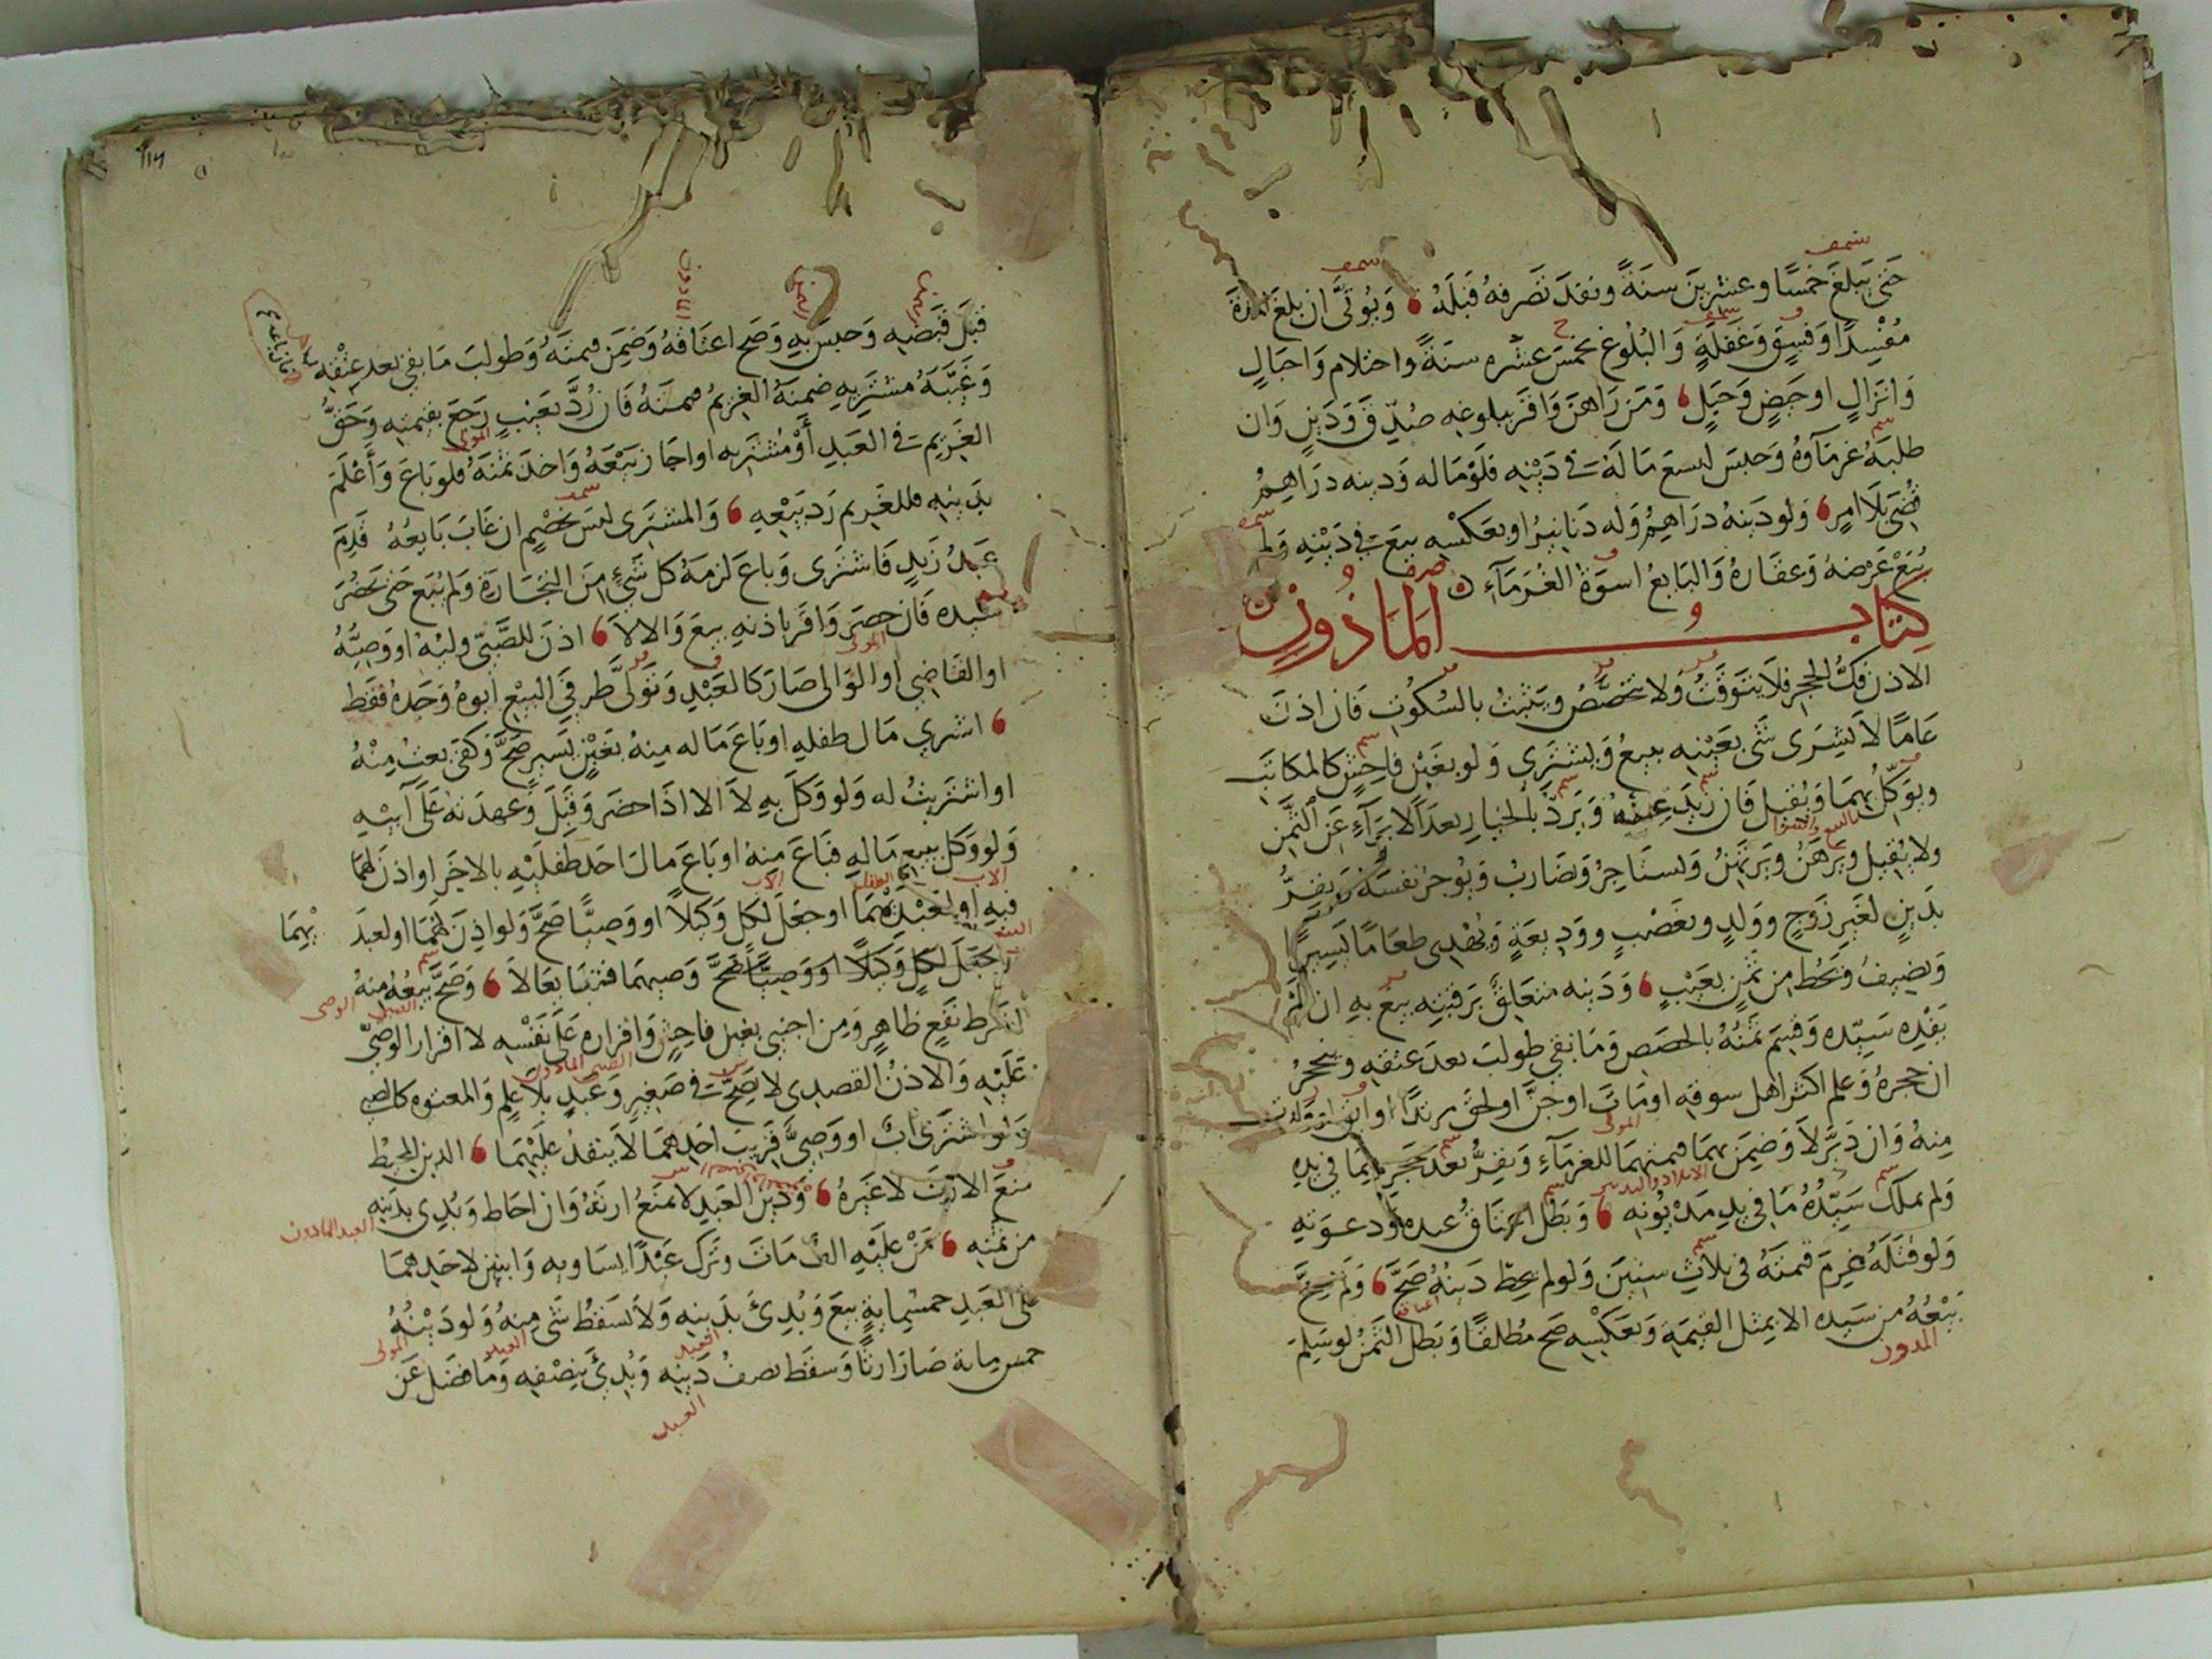 حتى يبلغ خمسا وعشرين سنة ونفذ تصرفه قبله ويؤتى ان بلغ المدة
مفسدا وفسق وغفلة والبلوغ بخمس عشره سنة واحتلام واحبال
وانزال او حيض وحبل ومن راهق واقر ببلوغه صدق ودين وان
طلبه غرماؤه وحبس ليبيع ماله في دينه فلو ماله ودينه دراهم
قضى بلا امر ولو دينه دراهم وله دنانير او بعكسه بيع في دينه ولم
يبع عرضه وعقاره والبايع اسوة الغرماء
كتاب المأذون
الاذن فك الحجر فلا يتوقت ولا يتخصص ويثبت بالسكوت فان اذن
عاما لا بشرى شى بعينه يبيع ويشترى ولو بغبن فاحش كالمكاتب
ويوكل بهما ويقبل فان زيد عنه ويرد بالخيار بعد الابراء عن الثمن
ولا يقبل ويرهن ويرتهن ويستاجر ويضارب ويوجر نفسه ويقر
بدين لغير زوج وولد وبغصب ووديعة ويهدى طعاما يسيرا
ويضيف ويحط من ثمن بعيب ودينه متعلق برقبته بيع به ان لم
يفده سيده وقسم ثمنه بالحصص وما بقي طولب بعد عتقه وينحجر
ان حجره وعلم اكثر اهل سوقه او مات او جن او لحق مرتدا او ابق
منه وان دبر لا وضمن بهما قيمتهما للغرماء ويقر بعد حجره بما في يده
ولم يملك سيده ما في يد مديونه وبطل اعتاق عبده ودعوته
ولو قتله غرم قيمته في ثلاث سنين ولو لم يحط دينه صح ولم يصح
بيعه من سيده الا بمثل القيمة وبعكسه صح مطلقا وبطل الثمن لو سلم
قبل قبضه وحبس به وصح اعتاقه وضمن قيمته وطولب ما بقى بعد عتقه
وغيبه مشتريه ضمنه الغريم قيمته فان رد بعيب رجع بقيمته وحق
الغريم في العبد او مشتريه او اجاز بيعه واخذ ثمنه فلو باع واعلم
بدينه فللغريم رد بيعه والمشترى ليس بخصم ان غاب بايعه قدم
عبد زيد فاشترى وباع لزمه كل شئ من التجارة ولم يبع حتى يحضر
سيده فان حضر واقر باذنه بيع والا لا اذن للصبى وليه او وصيه
او القاضى او الوالى صار كالعبد وتولى طرفي البيع ابوه وجده فقط
اشترى مال طفله او باع ماله منه بغبن يسير صح وكفى بعت منه
او اشتريت له ولو وكل به لا الا اذا حضر وقبل وعهدته على ابيه
ولو وكل ببيع ماله فباع منه او باع مال احد طفليه بالاخر او اذن لهما
فيه او لعبديهما او جعل لكل وكيلا او وصيا صح ولو اذن لهما او لعبد
يهما
او جعل لكل وكيلا او وصيا صح وصيهما فتبايعا لا وصح بيعه منه
لشرط نفع ظاهر ومن اجنبي بغبن فاحش واقراره على نفسه لا اقرار الوصى
عليه والاذن القصدى لا يصح في صغير وعبد بلا علم والمعتوه كالصبى
ولو اشترى اب او وصى قريب احدهما لا ينفذ عليهما الدين المحيط
منع الارث لا غيره ودين العبد لا يمنع ارثه وان احاط وبدى بدينه
من ثمنه من عليه الف مات وترك عبدا يساويه وابنين لاحدهما
على العبد خمسماية بيع وبدئ بدينه ولا يسقط شى منه ولو دينه
خمس ماية صار ارثا وسقط نصف دينه وبدئ بنصفه وما فضل عن